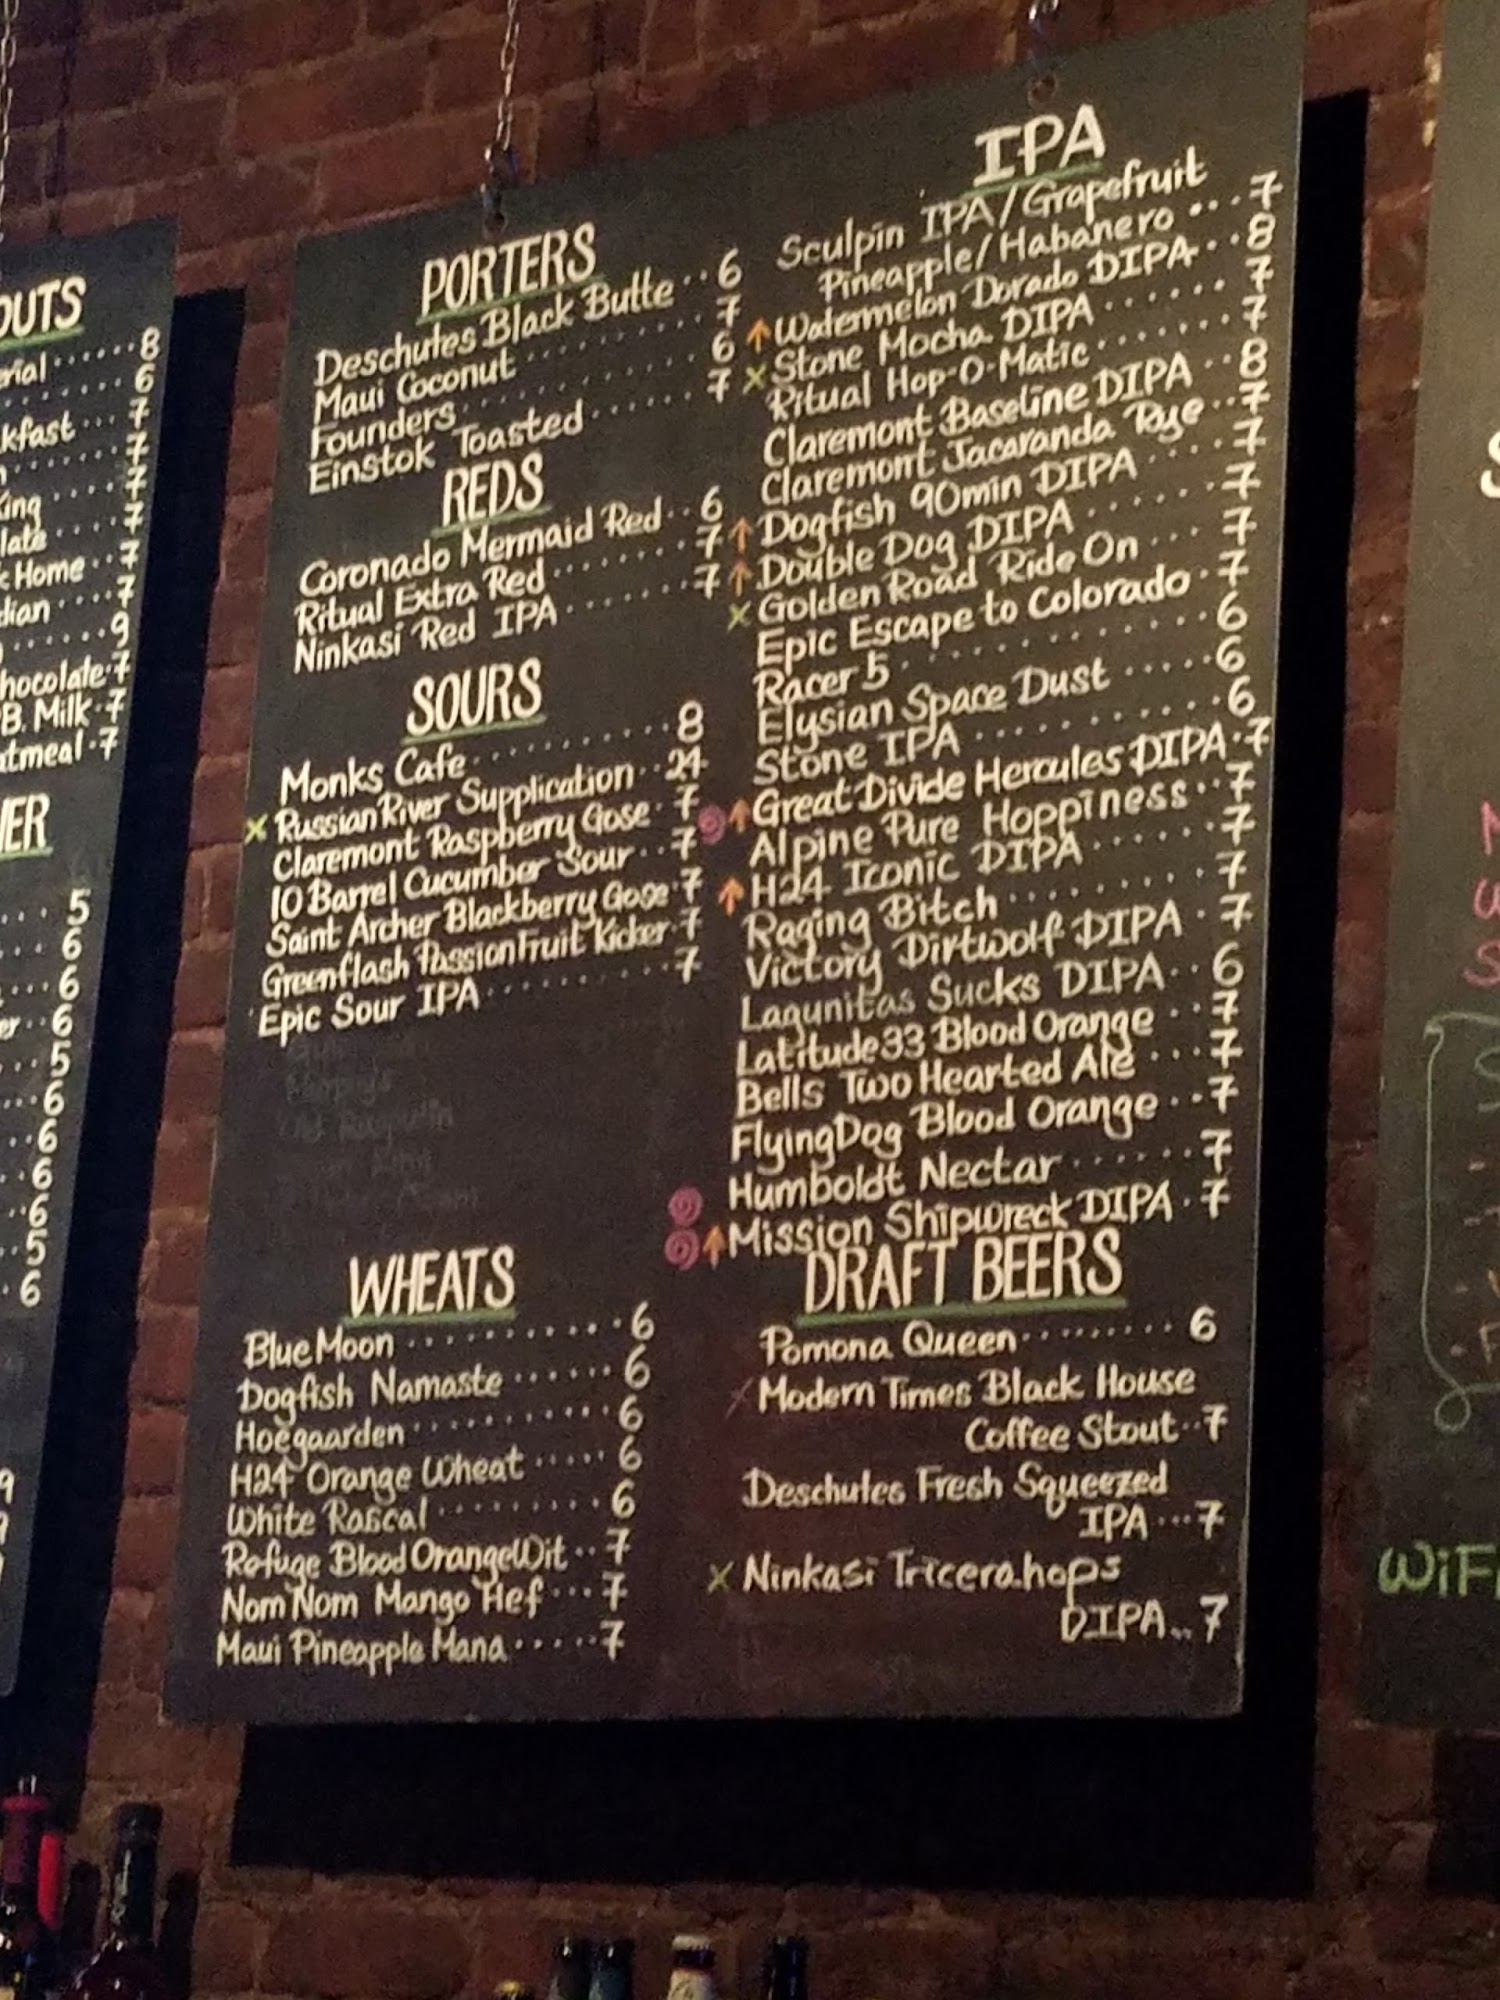 OUTS
erial ...... 8
...... 6
kfast ... 7
...... 7
King .... 7
late .... 7
Home .. 7
dian .... 7
...... 9
hocolate. 7
B. Milk . 7
atmeal . 7
ER
.... 5
... 6
... 6
er .. 6
... 5
... 6
.. 6
.. 6
.. 6
.. 5
.. 6
9
PORTERS
Deschutes Black Butte .. 6
Maui Coconut ........ 7
Founders .......... 6
Einstok Toasted ...... 7
REDS
Coronado Mermaid Red .. 6
Ritual Extra Red ....... 7
Ninkasi Red IPA ....... 7
SOURS
Monks Cafe .......... 8
x Russian River Supplication .. 24
Claremont Raspberry Gose . 7
10 Barrel Cucumber Sour .. 7
Saint Archer Blackberry Gose . 7
Greenflash Passion Fruit Kicker . 7
Epic Sour IPA ......... 7
WHEATS
Blue Moon ........... 6
Dogfish Namaste ...... 6
Hoegaarden .......... 6
H24 Orange Wheat ..... 6
White Rascal ......... 6
Refuge Blood Orange Wit .. 7
Nom Nom Mango Hef ... 7
Maui Pineapple Mana ..... 7
IPA
Sculpin IPA/Grapefruit
Pineapple/Habanero ... 7
↑ Watermelon Dorado DIPA .. 8
x Stone Mocha DIPA ...... 7
Ritual Hop-O-Matic ...... 7
Claremont Baseline DIPA .. 8
Claremont Jacaranda Rye .. 7
↑ Dogfish 90min DIPA .... 7
↑ Double Dog DIPA ...... 7
x Golden Road Ride On ... 7
Epic Escape to Colorado . 7
Racer 5 ............ 6
Elysian Space Dust ..... 6
Stone IPA .......... 6
↑ Great Divide Hercules DIPA . 7
Alpine Pure Hoppiness .. 7
↑ H24 Iconic DIPA ...... 7
Raging Bitch ......... 7
Victory Dirtwolf DIPA . 7
Lagunitas Sucks DIPA .. 6
Latitude 33 Blood Orange .. 7
Bells Two Hearted Ale ... 7
Flying Dog Blood Orange .. 7
Humboldt Nectar ...... 7
↑ Mission Shipwreck DIPA . 7
DRAFT BEERS
Pomona Queen ......... 6
Modern Times Black House
Coffee Stout .. 7
Deschutes Fresh Squeezed
IPA ... 7
x Ninkasi Tricerahops
DIPA .. 7
WiFi